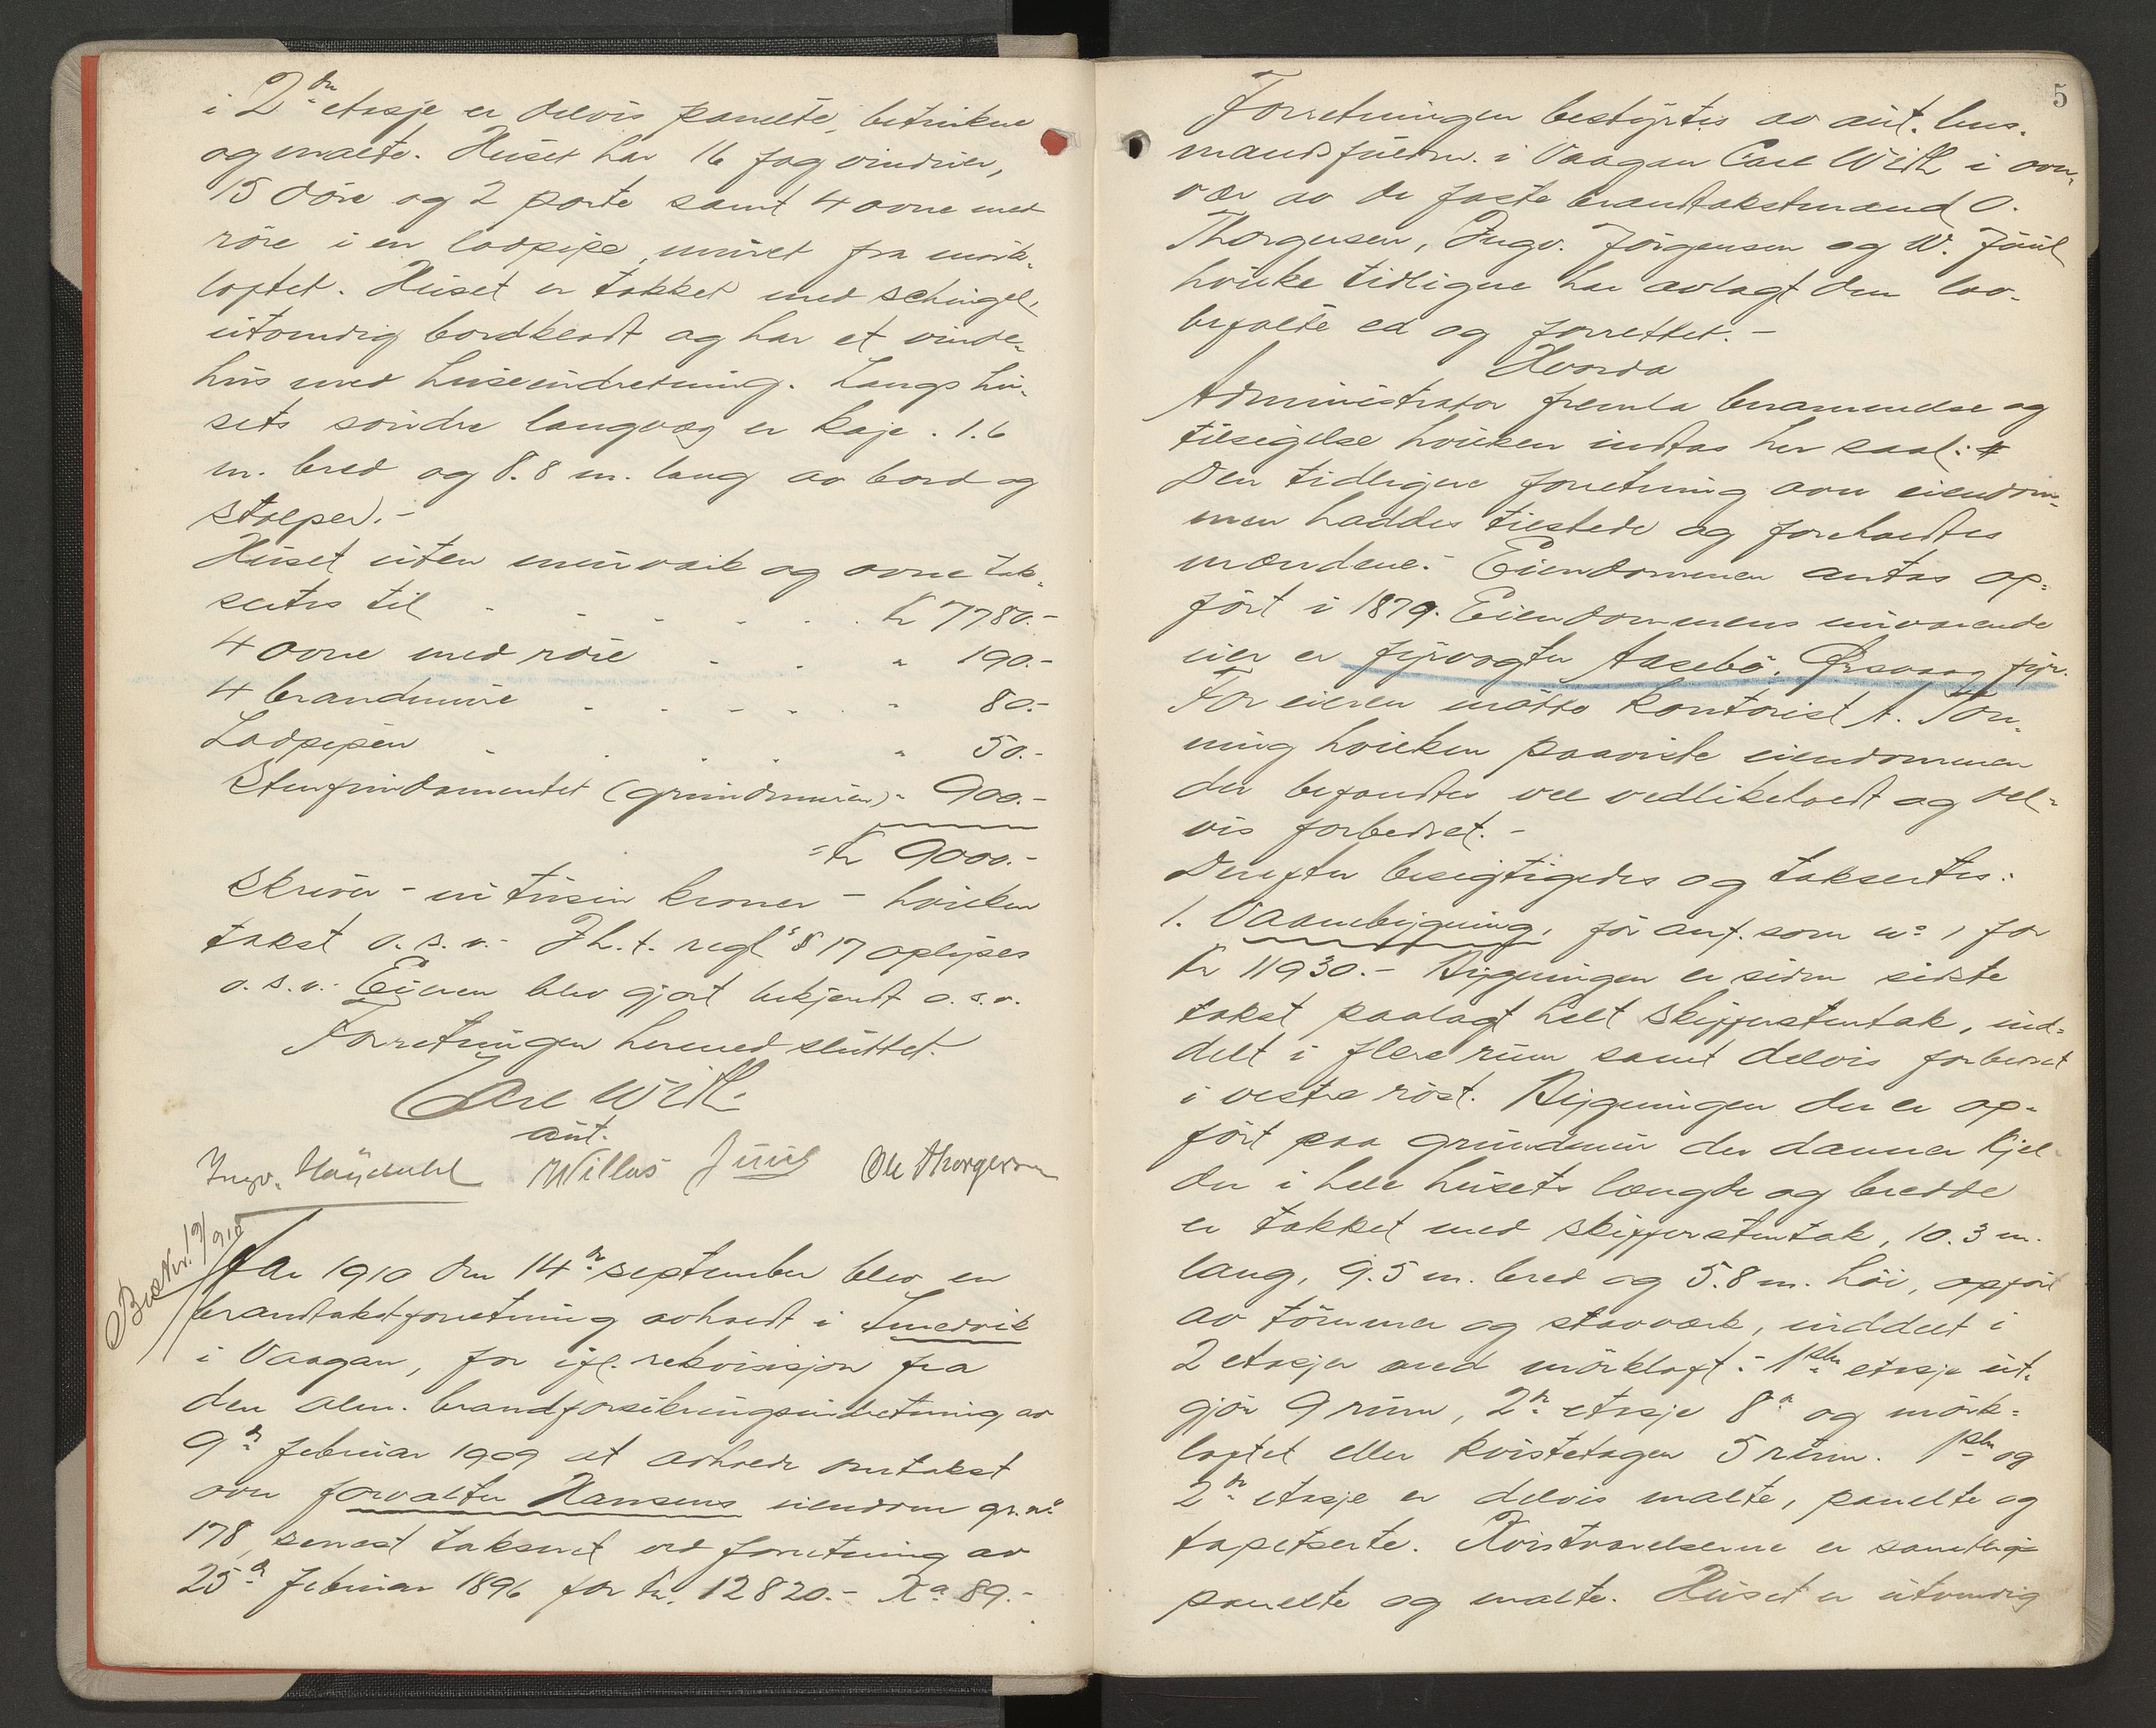 i 2den etasje er delvis panelte, betrukne
og malte. Huset har 16 fag vinduer,
15 döre og 2 porte samt 4 ovne med
röre i en lodpipe, muret fra mörk-
loftet. Huset er takket med schingel,
utvendig bordklædt og har et vinde-
hus med heiseindretning. Langs hu-
sets söndre langvæg er kaje. 1.6
m. bred og 8.8 m. lang av bord og
stolper.-
Huset uten murværk og ovne tak-
sertes til . . . . . Kr 7780.-
4 ovne med röre . . " 190.-
4 brandmure . . . . " 80.-
Lodpipen . . . . " 50.-
Stenfundamentet (grundmuren) " 900.-
= Kr 9000.-
skriver - ni tusin kroner - hvilken
takst o.s.v.- I h.t. regl's § 17 oplyses
o.s.v. Eieren blev gjort bekjendt o.s.v.
Forretningen hermed sluttet.
Carl With
aut.
Ingv. Willas Juul Ole Thorgersen
Best.nr. 19/910
Aar 1910 den 14de september blev en
brandtakstforretning avholdt i Smedvik
i Vaagan, for ifl. rekvisisjon fra
den alm. brandforsikringsindretning av
9de februar 1909 at avholde omtakst
over forvalter Hansens eiendom gr.no
178, senest taksert ved forretning av
25de februar 1896 for kr. 12820.- Ka 89.-
5
Forretningen bestyrtes av aut. lens-
mandsfuldm. i Vaagan Carl With i over-
vær av de faste brandtakstmænd O.
Thorgersen, Ingv. Jörgensen og W. Juul
hvilke tidligere har avlagt den lov-
befalte ed og forrettet.-
Hvorda
Administrator fremla berammelse og
tilsigelse hvilken indtas her saal:
Den tidligere forretning over eiendom-
men haddes tilstede og foreholdtes
mændene. Eiendommen antas op-
fört i 1879. Eiendommens nuværende
eier er fyrvogter Aasebö, Örsvåg fyr.
For eieren mötte kontorist A. Tön-
ning hvilken paaviste eiendommen
der befandtes vel vedlikeholdt og del-
vis forbedret.-
Derefter besigtigedes og taksertes:
1. Vaanebygning, för anf. som no 1 for
Kr 11930.- Bygningen er siden sidste
takst paalagt helt skifferstentak, ind-
delt i flere rum samt delvis forbedret
i vestre röst. Bygningen der er op-
fört paa grundmur der danner kjel-
der i hele husets længde og bredde
er takket med skifferstentak, 10.3 m.
lang, 9.5 m. bred og 5.8 m. höi, opfört
av tömmer og stavværk, inddelt i
2 etasjer med mörkloft: 1ste etasje ut-
gjör 9 rum, 2n etasje 8n og mörk-
loftet eller kvistetagen 5 rum. 1ste og
2n etasje er delvis malte, panelte og
tapetserte. Kvistværelserne er samtlige
panelte og malte. Huset er utvendig